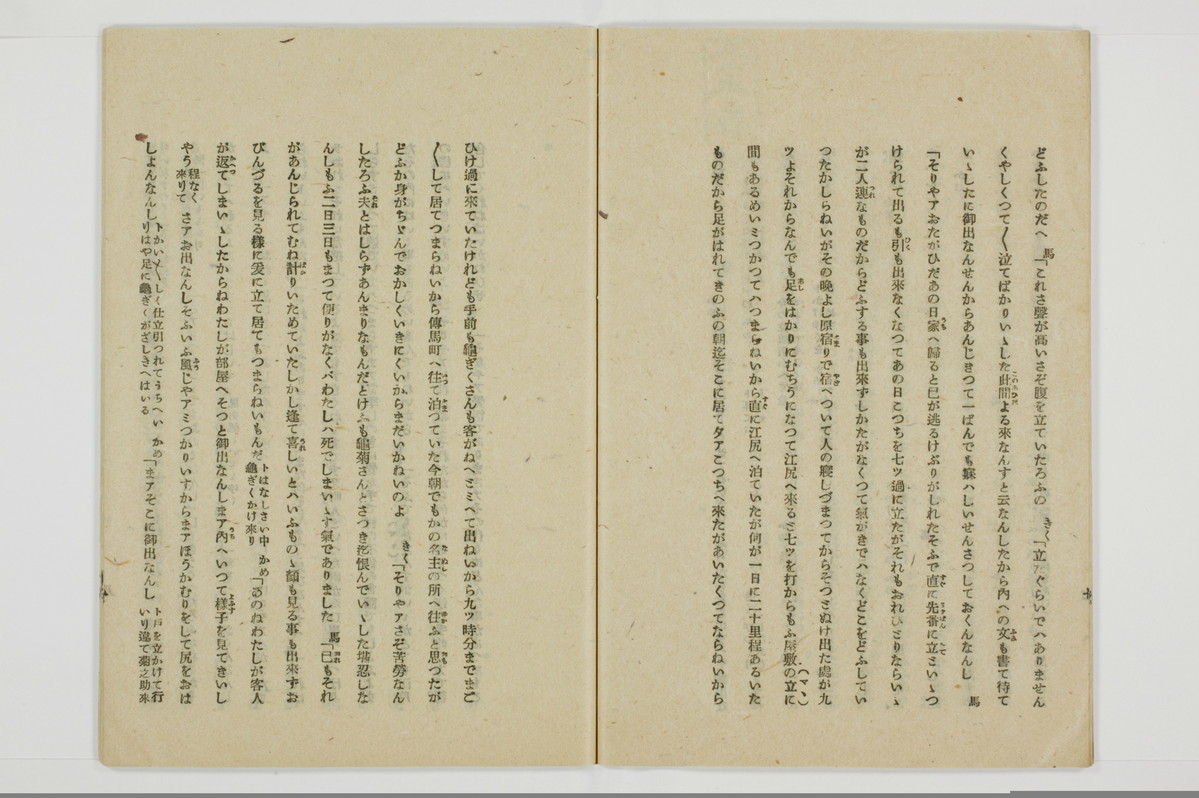 どふしたのだへ 馬「これさ聲が高いさぞ腹を立ていたろふの きく「立たぐらいでハありません
くやしくつて〳〵泣てばかりいゝした此間よる来なんすと云なんしたから内への文も書て待て
いゝしたに御出なんせんからあんじきつて一ばんでも寐ハしいせんさつしておくんなんし 馬
「そりやアおたがひだあの日家へ歸ると已が逃るけぶりがしれたそふで直に先番に立ミいゝつ
けられて出るも引も出来なくなつてあの日こつちを七ツ過に立たがそれもおれひとりならいゝ
が二人連なものだからどふする事も出来ずしかたがなくつて氣がきでハなくどこをどふしてい
つたかしらねいがその晩よし原宿りで宿へついて人の寢しづまつてからそつとぬけ出た處が九
ツよそれからなんでも足をはかりにむちうになつて江尻へ来るミ七ツを打からもふ屋敷の立に(ママ)
間もあるめいミつかつてハつまらねいから直に江尻へ泊ていたが何が一日に二十里程あるいた
ものだから足がはれてきのふの朝迄そこに居て夕アこつちへ来たがあいたくつてならねいから
ひけ過に來ていたけれども手前も龜ぎくさんも客がねへミミへて出ねいから九ツ時分までまご
〳〵して居てつまらねいから傳馬町へ往て泊つていた今朝でもかの名主の所へ往ふと思つたが
どふか身がちゞんでおかしくいきにくいからまだいかねいのよ きく「そりやアさぞ苦勞なん
したろふ夫とはしらずあんまりなもんだとけふも龜菊さんとさつき迄恨んでいゝした堪忍しな
んしもふ二日三日もまつて便りがなくバわたしハ死でしまいゝす氣でありました 馬「已もそれ
があんじられてむね計りいためていたしかし逢て喜しいとハいふものゝ顔も見る事も出來ずお
びんづるを見る様に爰に立て居てもつまらねいもんだ トはなしさい中龜ぎくかけ来り かめ「あのねわたしが客人
が返てしまいゝしたからねわたしが部屋へそつと御出なんしまア内へいつて様子を見てきいし
やう 程なく來りて さアお出なんしそふいふ風じやアミつかりいすからまアほうかむりをして尻をおは
しよんなんし トかい〴〵しく仕立引つれてうちへいりはや足に龜ぎくがざしきへはいる かめ「まアそこに御出なんし ト戸を立かけて行いり違て菊之助來